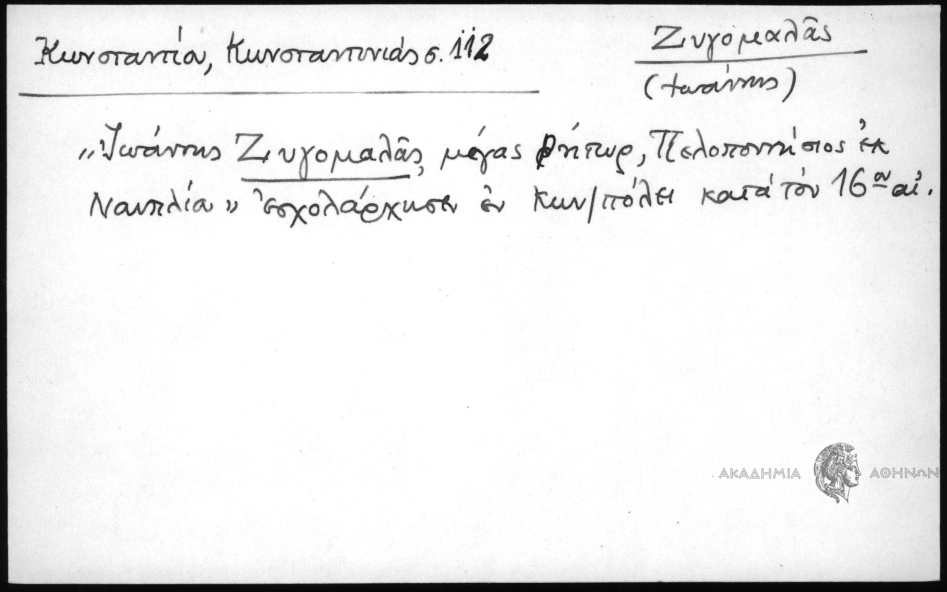 Κωνσταντίου, Κωνσταντινιάς σ. 112
Ζυγομαλᾶς
(Ἰωάννης)
„Ἰωάννης Ζυγομαλᾶς, μέγας ῥήτωρ, Πελοποννήσιος ἐκ
Ναυπλίου" ἐσχολάρχησεν ἐν Κων/πόλει κατά τόν 16ον αἰ.
ΑΚΑΔΗΜΙΑ ΑΘΗΝΩΝ